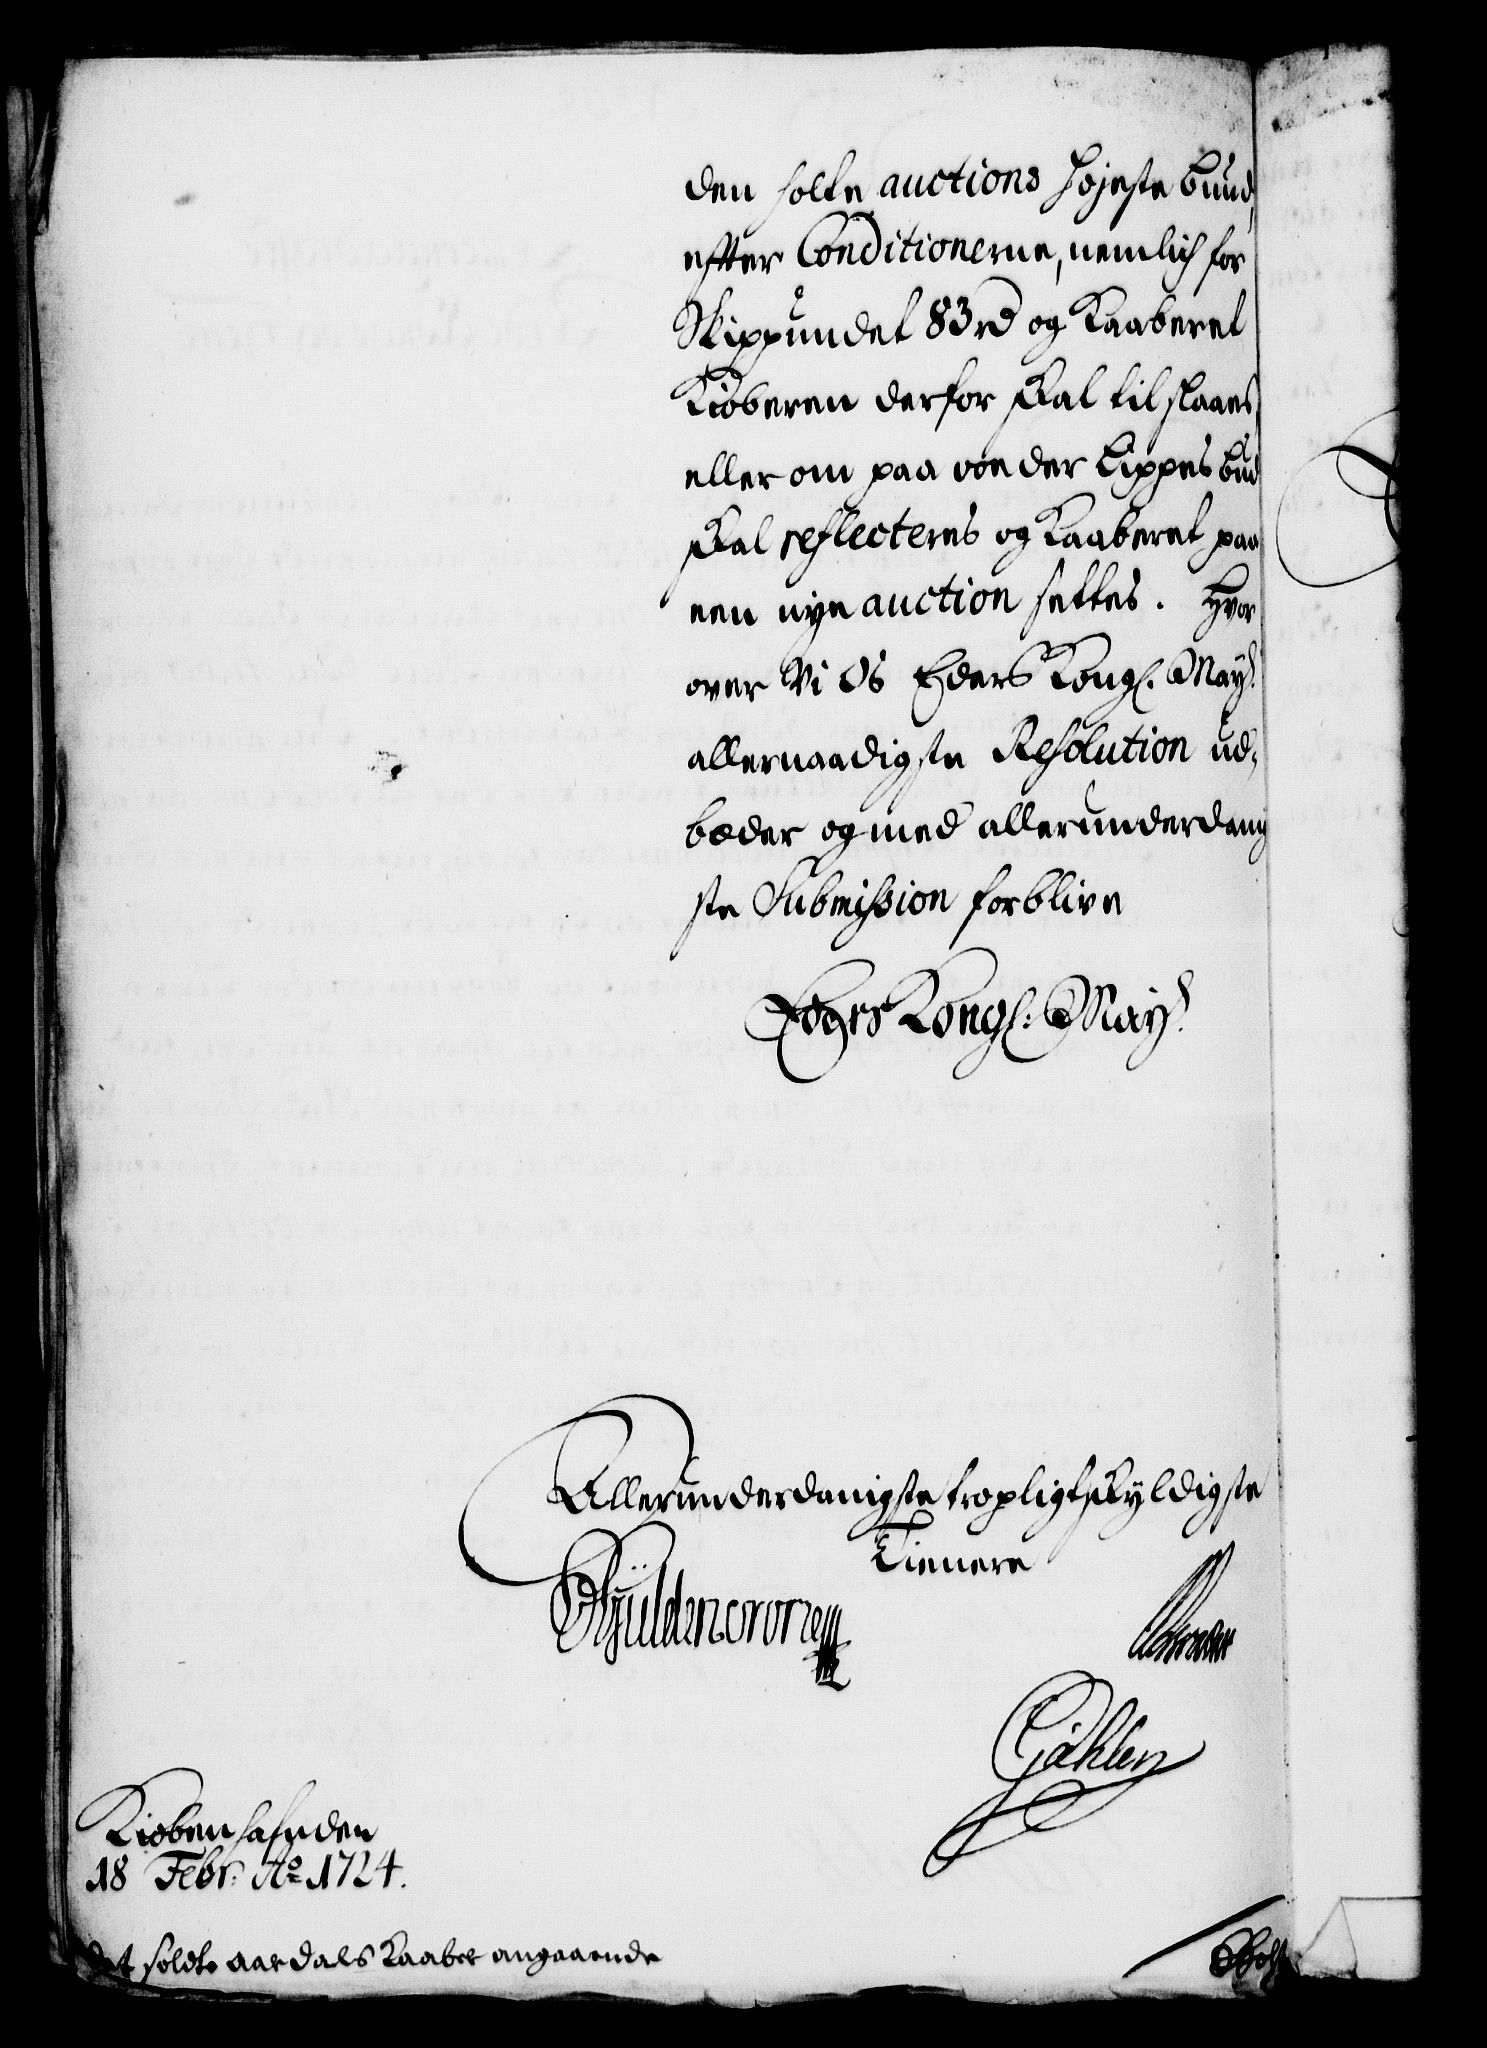 den holte auctions højeste bund,
efter Conditionerne, nemlich for
Skippundet 83 rd og Kaaberet
Kiøberen derfor skal tilslaaes,
eller om paa von der Lippes bud
skal reflecteres og Kaaberet paa
een nye auction settes. Hvor
over Vi Os Eders Kongl. May:
allernaadigste Resolution ud,
beder og med allerunderdanig
ste Submission forblive
Eders Kongl: May:
Allerunderdanigste tropligtskyldigste
Tienere
Gyldencrone
Gähler
Kiøbenhafn den
18 Febr: Ao 1724.
det soldte Aardals Kaaber angaaende